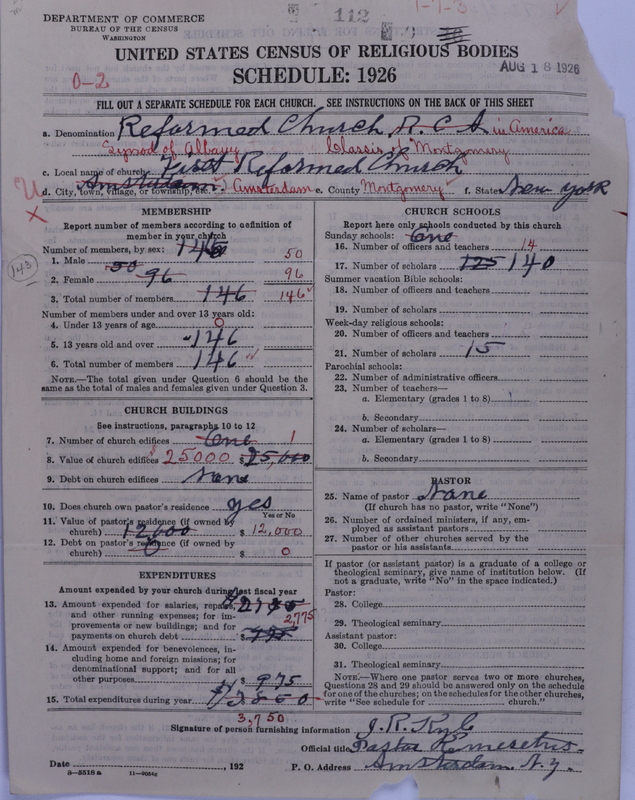 DEPARTMENT OF COMMERCE
BUREAU OF THE CENSUS
WASHINGTON
112
1-1-3
UNITED STATES CENSUS OF RELIGIOUS BODIES
SCHEDULE: 1926
AUG 18 1926
0-2
FILL OUT A SEPARATE SCHEDULE FOR EACH CHURCH. SEE INSTRUCTIONS ON THE BACK OF THIS SHEET
a. Denomination Reformed Church R. C. A in America
Synod of Albany Classis of Montgomery
c. Local name of church First Reformed Church
d. City, town, village, or township, etc. Amsterdam Amsterdam e. County Montgomery f. State New York
MEMBERSHIP
Report number of members according to definition of
member in your church
Number of members, by sex: 146
1. Male 50 50
143
2. Female 96 96
3. Total number of members 146 146
Number of members under and over 13 years old:
4. Under 13 years of age 0
5. 13 years old and over 146
6. Total number of members 146
NOTE.—The total given under Question 6 should be the
same as the total of males and females given under Question 3.
CHURCH BUILDINGS
See instructions, paragraphs 10 to 12
7. Number of church edifices One 1
8. Value of church edifices 25000 $ 25,000
9. Debt on church edifices None
10. Does church own pastor's residence yes
Yes or No
11. Value of pastor's residence (if owned by
church) 12,000 $ 12,000
12. Debt on pastor's residence (if owned by
church) 0 $ 0
EXPENDITURES
Amount expended by your church during last fiscal year
13. Amount expended for salaries, repairs,
and other running expenses; for im- 2,775
provements or new buildings; and for
payments on church debt $
14. Amount expended for benevolences, in-
cluding home and foreign missions; for
denominational support; and for all
other purposes $ 975
15. Total expenditures during year
3,750
CHURCH SCHOOLS
Report here only schools conducted by this church
Sunday schools: One
16. Number of officers and teachers 14
17. Number of scholars 125 140
Summer vacation Bible schools:
18. Number of officers and teachers
19. Number of scholars
Week-day religious schools:
20. Number of officers and teachers
21. Number of scholars 15
Parochial schools:
22. Number of administrative officers
23. Number of teachers—
a. Elementary (grades 1 to 8)
b. Secondary
24. Number of scholars—
a. Elementary (grades 1 to 8)
b. Secondary
PASTOR
25. Name of pastor None
(If church has no pastor, write "None")
26. Number of ordained ministers, if any, em-
ployed as assistant pastors
27. Number of other churches served by the
pastor or his assistants
If pastor (or assistant pastor) is a graduate of a college or
theological seminary, give name of institution below. (If
not a graduate, write "No" in the space indicated.)
Pastor:
28. College
29. Theological seminary
Assistant pastor:
30. College
31. Theological seminary
NOTE.—Where one pastor serves two or more churches,
Questions 28 and 29 should be answered only on the schedule
for one of the churches; on the schedules for the other churches,
write "See schedule for church."
Signature of person furnishing information J. R. Kyle
Official title Pastor Emeritus
Date , 192
P. O. Address Amsterdam N. Y.
8-5518a 11-9054